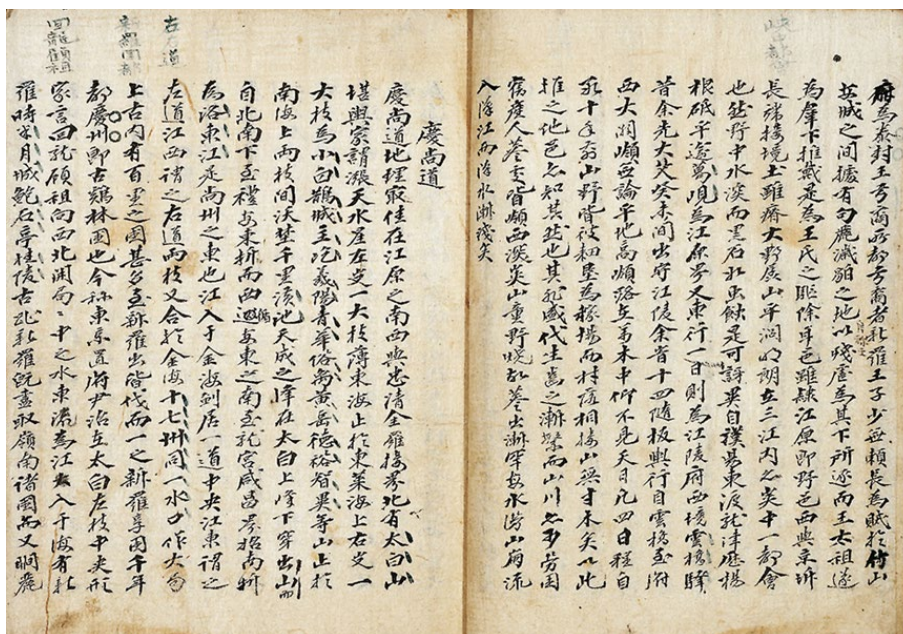 峽中都會
府爲泰封王弓裔所都弓裔者新羅王子少無賴長爲賊於竹山
安城之間據有句麗濊貊之地以殘虐爲其下所逐而王太祖遂
爲羣下推戴是爲王氏之駈除耳邑雖隷江原即野邑西與京圻
長湍接境土雖瘠大野居山平濶明朗在二江內是矣中一都會
也然野中水深而黑石如虫蝕是可訝異自東渡龍津歷楊
根砥平爲江原界又東行一日則爲江陵府西境雲橋驛
昔余先大父癸未間出守江陵余昔十四隨板輿行自雲橋至府
西大關嶺無論平地高嶺路在萬木中仰不見天日凡四日程自
十年前山野皆被初墾爲稼場而村落相接山無寸木矣以此
推之他邑亦知其然也其盛代生齒之漸繁而山川亦多勞困
舊産人蔘云皆嶺西深峽山童野燒故蔘出漸罕每水滂山崩流
入漢江而漢水漸淺矣
左右道
新羅国都
回龍顧祖
慶尚道
慶尚道地理最佳在江原之南西與忠清全羅接界北有太白山
堪輿家謂漲天水星左支一大枝薄東海止於東萊海上右支一
大枝爲小白鵲城主屹羲陽青華俗离黄岳德裕智異等山止於
南海上兩枝間沃埜千里潢池天成之峰在太白上峰下穿出山而
自北南下至禮安東折而西迤安東之南至龍宮咸昌界始南折
爲洛東江是尚州之東也江入于金海則居一道中央江東謂之
左道江西謂之右道兩枝又合於金海十七州同一水口作大局
上古內有百里之國甚多至新羅出皆伐而一之新羅享国千年
都慶州即古鷄林国也今称東京置府尹治在太白左枝中央形
家言回龍顧祖向西北開局局中之水東流爲江去入于海有新
羅時半月城鮑石亭佳陵古跡新羅既盡取嶺南諸國而又詗麗